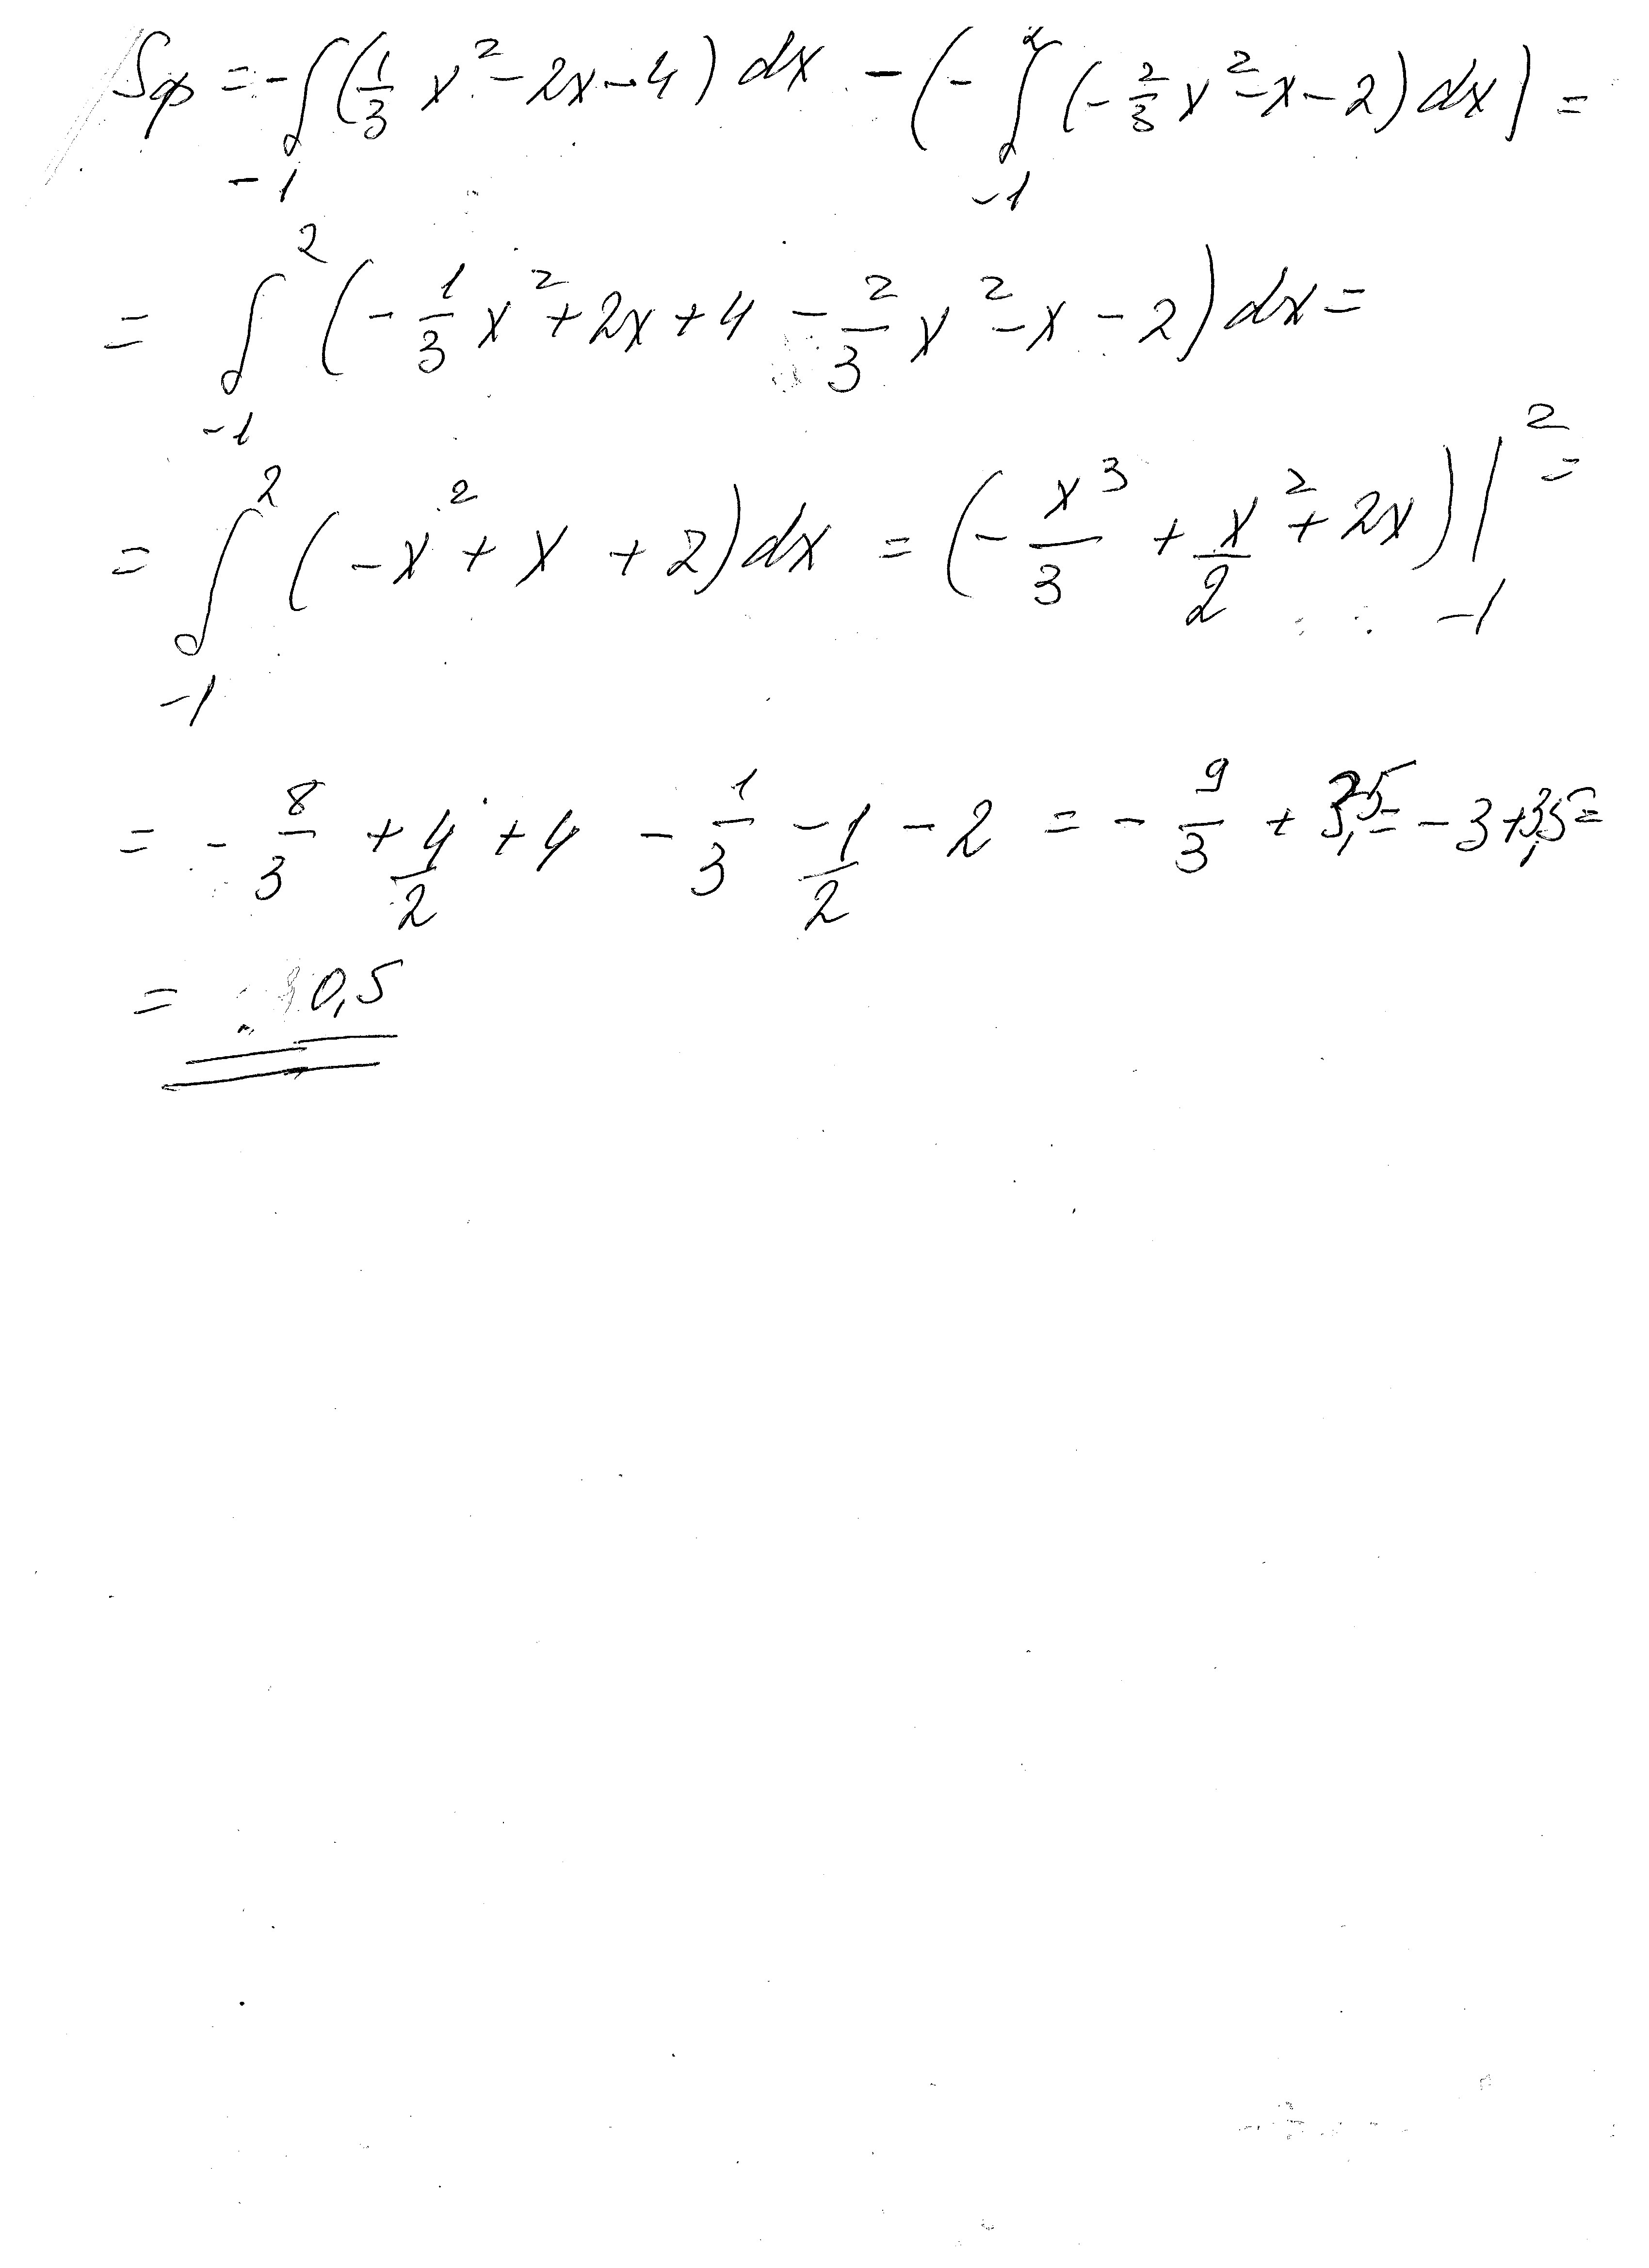 Sф = -∫₋₁ (1/3 x² - 2x - 4) dx - (-∫₋₁² (-2/3 x² - x - 2) dx) =
= ∫₋₁² (-1/3 x² + 2x + 4 - 2/3 x² - x - 2) dx =
= ∫₋₁² (-x² + x + 2) dx = (-x³/3 + x²/2 + 2x) |₋₁² =
= -8/3 + 4/2 + 4 - 1/3 - 1/2 - 2 = -9/3 + 3,5 = -3 + 3,5 =
= 0,5